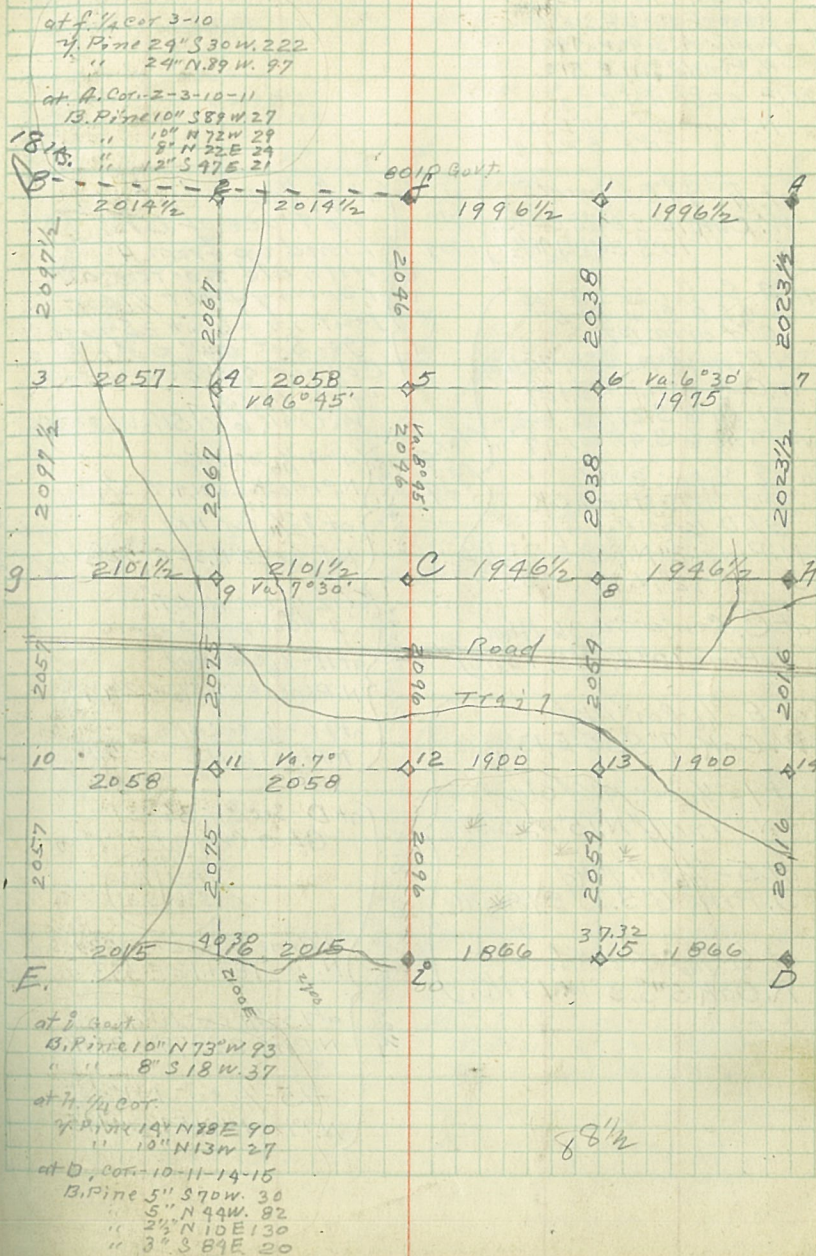 at f. 1/4 cor 3-10
Y. Pine 24" S 30 W. 222
" 24" N. 89 W. 97
at A. Cor. 2-3-10-11
B. Pine 10" S 89 W 27
" 10" N 72 W 29
" 8" N 22 E 24
" 12" S 47 E 21
B f Govt. 1 A
2014 1/2 2014 1/2 1996 1/2 1996 1/2
2097 1/2 2067 2096 2038 2023 1/2
3 2057 4 2058 5 6 Va. 6° 30' 7
Va 6° 45' 1975
2097 1/2 2067 2096 Va. 8° 45' 2038 2023 1/2
g 2101 1/2 9 2101 1/2 C 1946 1/2 8 1946 1/2 H
Va. 7° 30'
Road
2057 2075 2096 2054 2016
Trail
10 2058 11 Va. 7° 12 1900 13 1900 14
2058
2057 2075 2096 2054 2016
2015 2015 1866 37.32 1866
E. i 15 D
2100 E
at i Govt
B. Pine 10" N 73° W 93
" " 8" S 18 W. 37
at H. 1/4 cor.
Y. Pine 14" N 88 E 90
" 10" N 13 W 27
88 1/2
at D, cor. 10-11-14-15
B. Pine 5" S 70 W. 30
5" N 44 W. 82
" 2 1/2" N 10 E 130
" 3" S 84 E 20